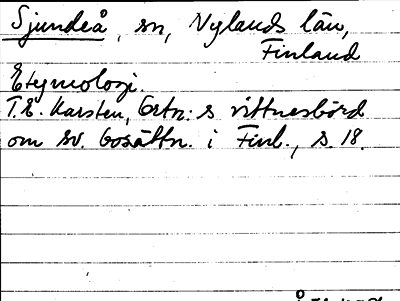 Sjundeå, sn, Nylands län,
Finland
Etymologi.
T.E. Karsten, Ortn:s vittnesbörd
om sv. bosättn. i Finl., s. 18.